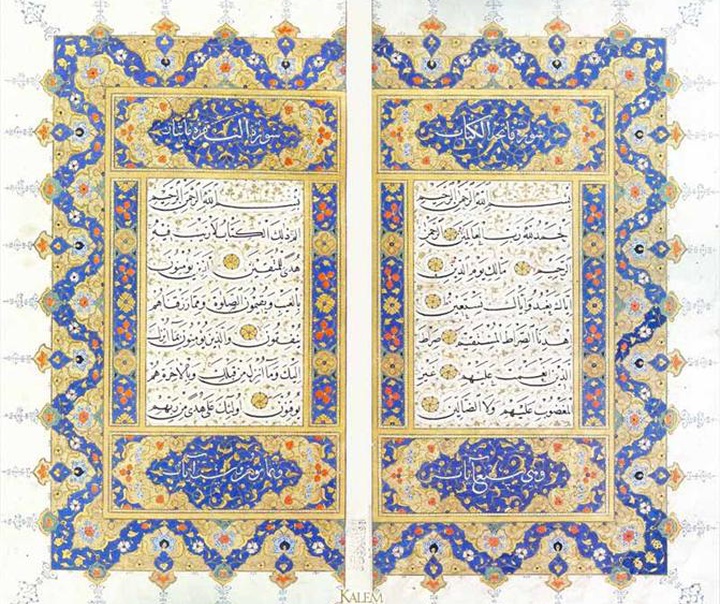 سورة فاتحة الكتاب
بِسْمِ اللَّهِ الرَّحْمَنِ الرَّحِيمِ
الْحَمْدُ لِلَّهِ رَبِّ الْعَالَمِينَ الرَّحْمَنِ
الرَّحِيمِ مَالِكِ يَوْمِ الدِّينِ
إِيَّاكَ نَعْبُدُ وَإِيَّاكَ نَسْتَعِينُ
اهْدِنَا الصِّرَاطَ الْمُسْتَقِيمَ صِرَاطَ
الَّذِينَ أَنْعَمْتَ عَلَيْهِمْ غَيْرِ
الْمَغْضُوبِ عَلَيْهِمْ وَلَا الضَّالِّينَ
وهي سبع آيات
سورة البقرة مائتان
بِسْمِ اللَّهِ الرَّحْمَنِ الرَّحِيمِ
الم ذَلِكَ الْكِتَابُ لَا رَيْبَ فِيهِ
هُدًى لِلْمُتَّقِينَ الَّذِينَ يُؤْمِنُونَ
بِالْغَيْبِ وَيُقِيمُونَ الصَّلَوةَ وَمِمَّا رَزَقْنَاهُمْ
يُنْفِقُونَ وَالَّذِينَ يُؤْمِنُونَ بِمَا أُنْزِلَ
إِلَيْكَ وَمَا أُنْزِلَ مِنْ قَبْلِكَ وَبِالْآخِرَةِ هُمْ
يُوقِنُونَ أُولَئِكَ عَلَى هُدًى مِنْ رَبِّهِمْ
وثمانون وست آيات
KALEM